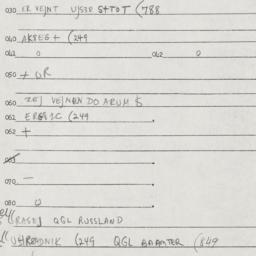 030 ER VEJNT USSR STTOT (788
040 AKSEG + (249
041 0 042 0
050 + UR
060 ZEJ VEJNAN DO ARUM $
061 ERGSIC (249
062 +
063
070 —
080 0
((RASE) QGL RUSSLAND
(249 QGL BAAMTER (849